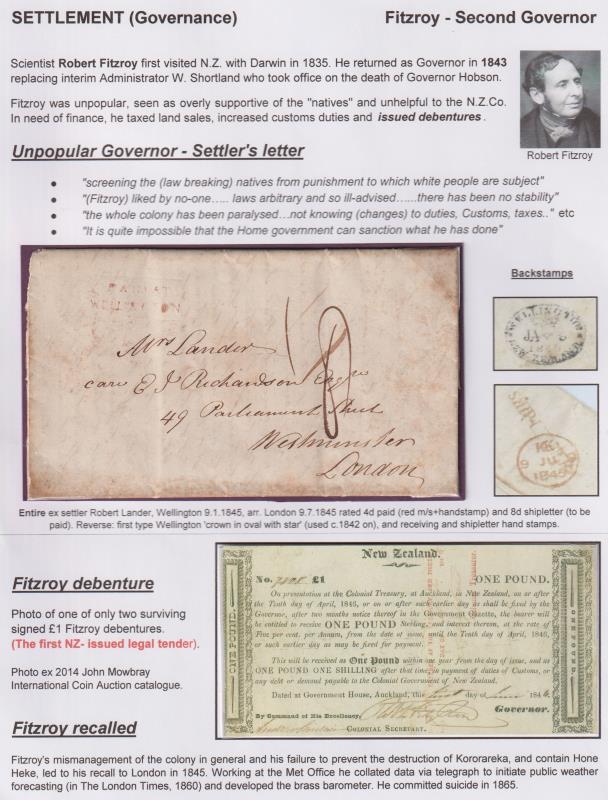 SETTLEMENT (Governance)
Fitzroy - Second Governor
Scientist Robert Fitzroy first visited N.Z. with Darwin in 1835. He returned as Governor in 1843
replacing interim Administrator W. Shortland who took office on the death of Governor Hobson.
Fitzroy was unpopular, seen as overly supportive of the "natives" and unhelpful to the N.Z.Co.
In need of finance, he taxed land sales, increased customs duties and issued debentures.
Robert Fitzroy
Unpopular Governor - Settler's letter
• "screening the (law breaking) natives from punishment to which white people are subject"
• "(Fitzroy) liked by no-one….. laws arbitrary and so ill-advised……there has been no stability"
• "the whole colony has been paralysed…not knowing (changes) to duties, Customs, taxes.." etc
• "It is quite impossible that the Home government can sanction what he has done"
Backstamps
PAID AT
WELLINGTON
Mrs Lander
care E J Richardson Esqre
49 Parliament Street
Westminster
London
8
WELLINGTON
NEW ZEALAND
SHIP
9 JU
1845
Entire ex settler Robert Lander, Wellington 9.1.1845, arr. London 9.7.1845 rated 4d paid (red m/s+handstamp) and 8d shipletter (to be
paid). Reverse: first type Wellington 'crown in oval with star' (used c.1842 on), and receiving and shipletter hand stamps.
Fitzroy debenture
Photo of one of only two surviving
signed £1 Fitzroy debentures.
(The first NZ- issued legal tender).
Photo ex 2014 John Mowbray
International Coin Auction catalogue.
New Zealand.
No. £1 ONE POUND.
On presentation at the Colonial Treasury, at Auckland, in New Zealand, on or after
the Tenth day of April, 1846, or on or after such earlier day as shall be fixed by the
Governor, after two months notice thereof in the Government Gazette, the bearer will
be entitled to receive ONE POUND Sterling, and interest thereon, at the rate of
Five per cent. per Annum, from the date of issue, until the Tenth day of April, 1846,
or such earlier day as may be fixed for payment.
This will be received as One Pound within one year from the day of issue, and as
ONE POUND ONE SHILLING after that time in payment of duties of Customs, or
any debt or demand payable to the Colonial Government of New Zealand.
Dated at Government House, Auckland, this first day of June 184
By Command of His Excellency,
Governor.
COLONIAL SECRETARY.
ONE POUND.
ONE POUND.
Fitzroy recalled
Fitzroy's mismanagement of the colony in general and his failure to prevent the destruction of Kororareka, and contain Hone
Heke, led to his recall to London in 1845. Working at the Met Office he collated data via telegraph to initiate public weather
forecasting (in The London Times, 1860) and developed the brass barometer. He committed suicide in 1865.